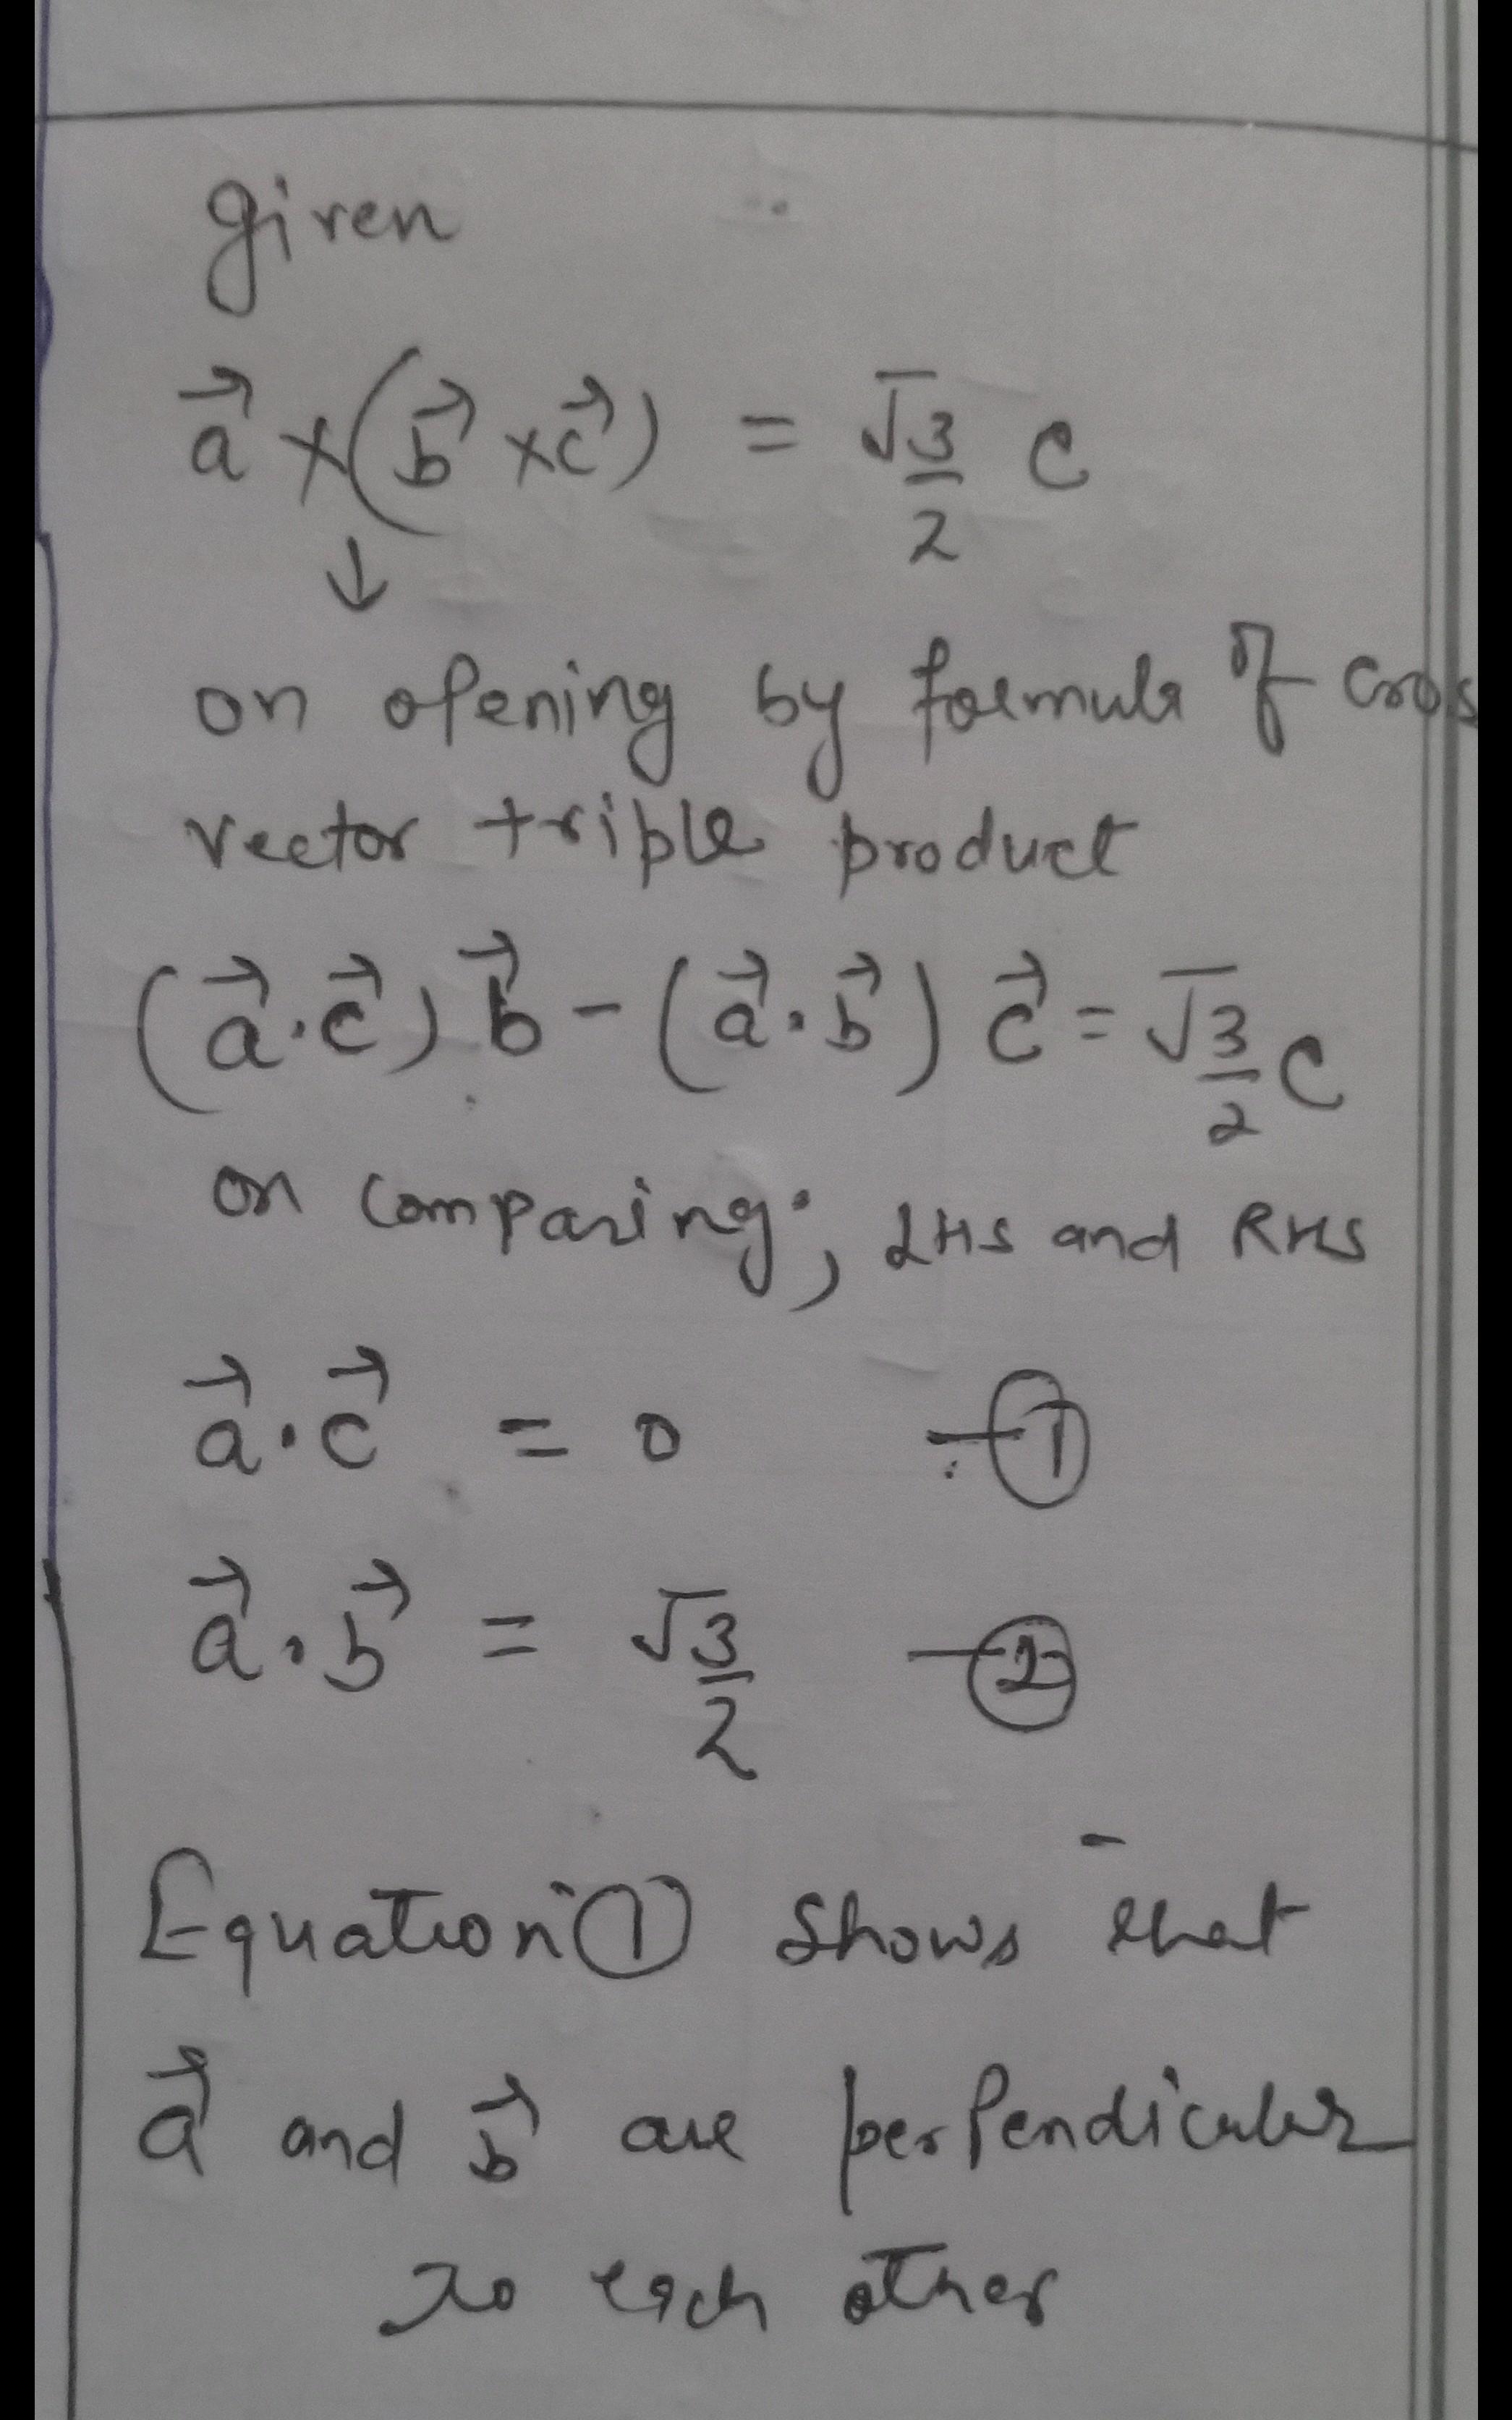 given
a⃗ × (b⃗ × c⃗) = √3/2 c
↓
on opening by formula of cross
vector triple product
(a⃗·c⃗) b⃗ - (a⃗·b⃗) c⃗ = √3/2 c
on comparing; LHS and RHS
a⃗·c⃗ = 0 —①
a⃗·b⃗ = √3/2 —②
Equation ① shows that
a⃗ and b⃗ are perpendicular
to each other